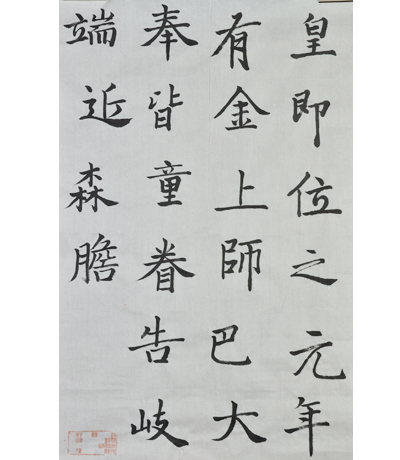 皇即位之元年
有金上師巴大
奉皆童眷告岐
端近森膽